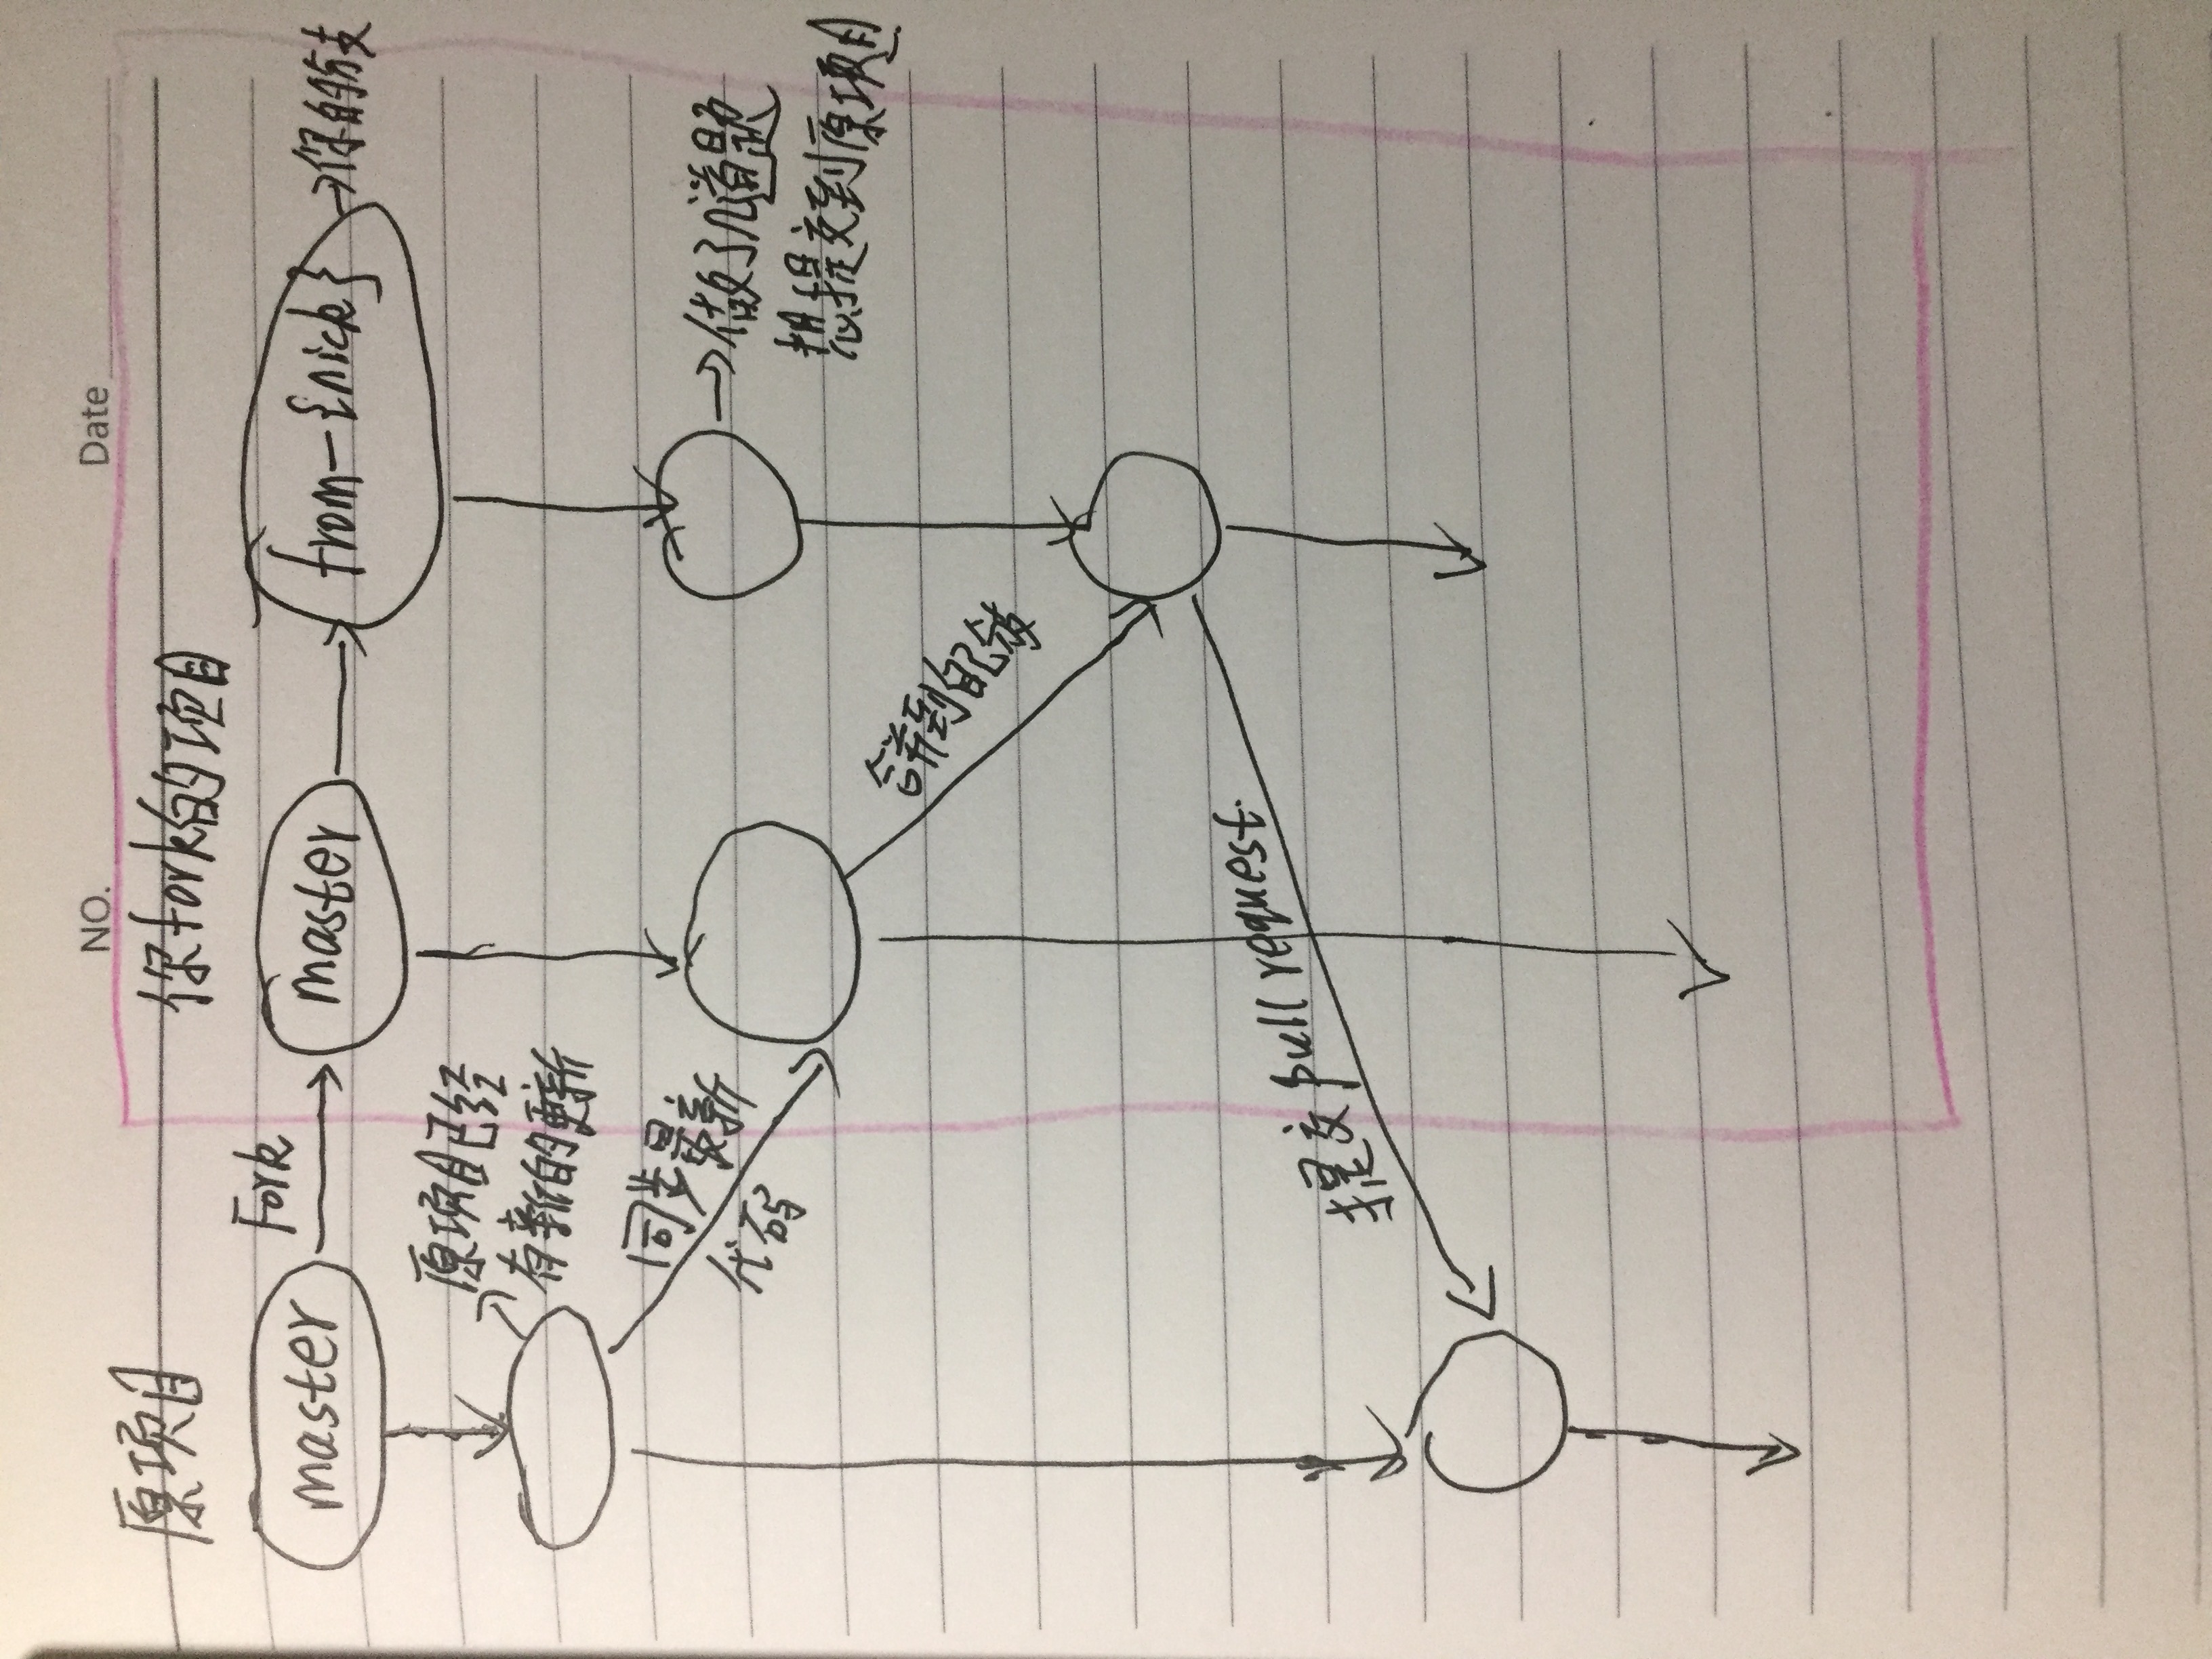 NO.
Date
原项目
你fork的项目
master
Fork
master
from-{nick}
你的分支
原项目已经
有新的更新
同步最新
代码
做了几道题
想提交到原项目
合并到自己分支
提交pull request.